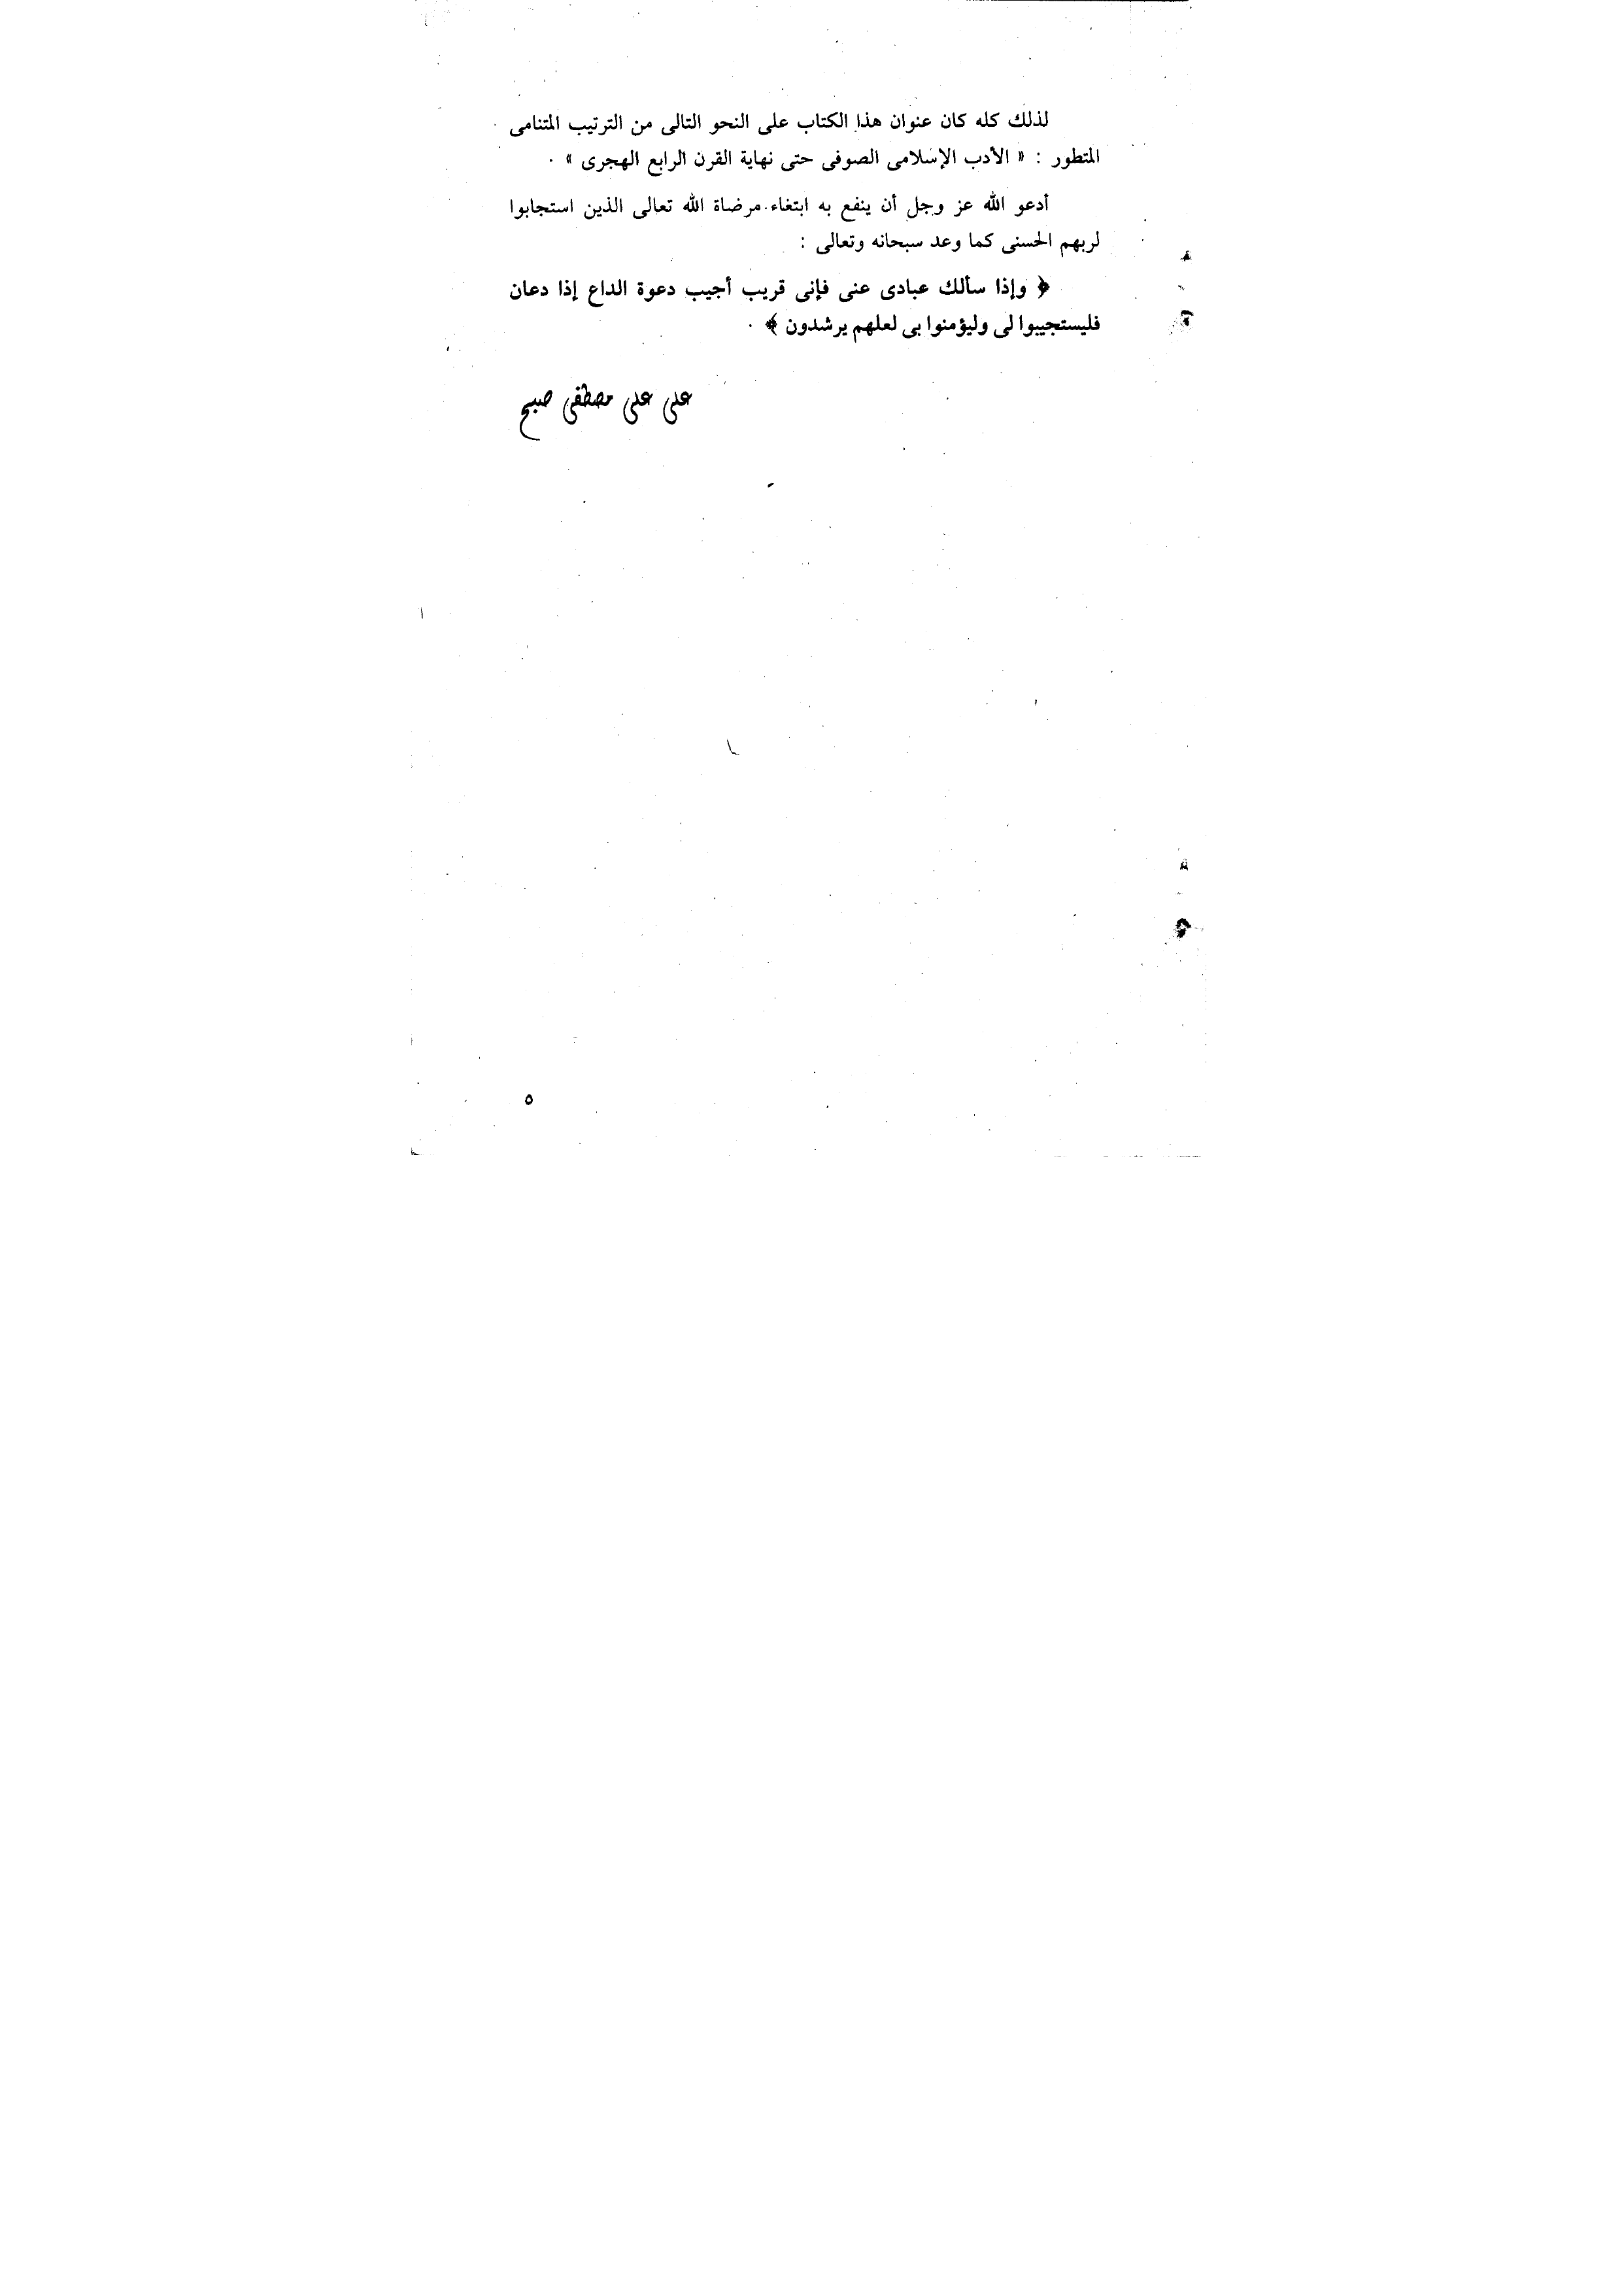 لذلك كله كان عنوان هذا الكتاب على النحو التالى من الترتيب المتنامى
المتطور : « الأدب الإسلامى الصوفى حتى نهاية القرن الرابع الهجرى » .
أدعو الله عز وجل أن ينفع به ابتغاء مرضاة الله تعالى الذين استجابوا
لربهم الحسنى كما وعد سبحانه وتعالى :
﴿ وإذا سألك عبادى عنى فإنى قريب أجيب دعوة الداع إذا دعان
فليستجيبوا لى وليؤمنوا بى لعلهم يرشدون ﴾ .
على على مصطفى صبح
٥